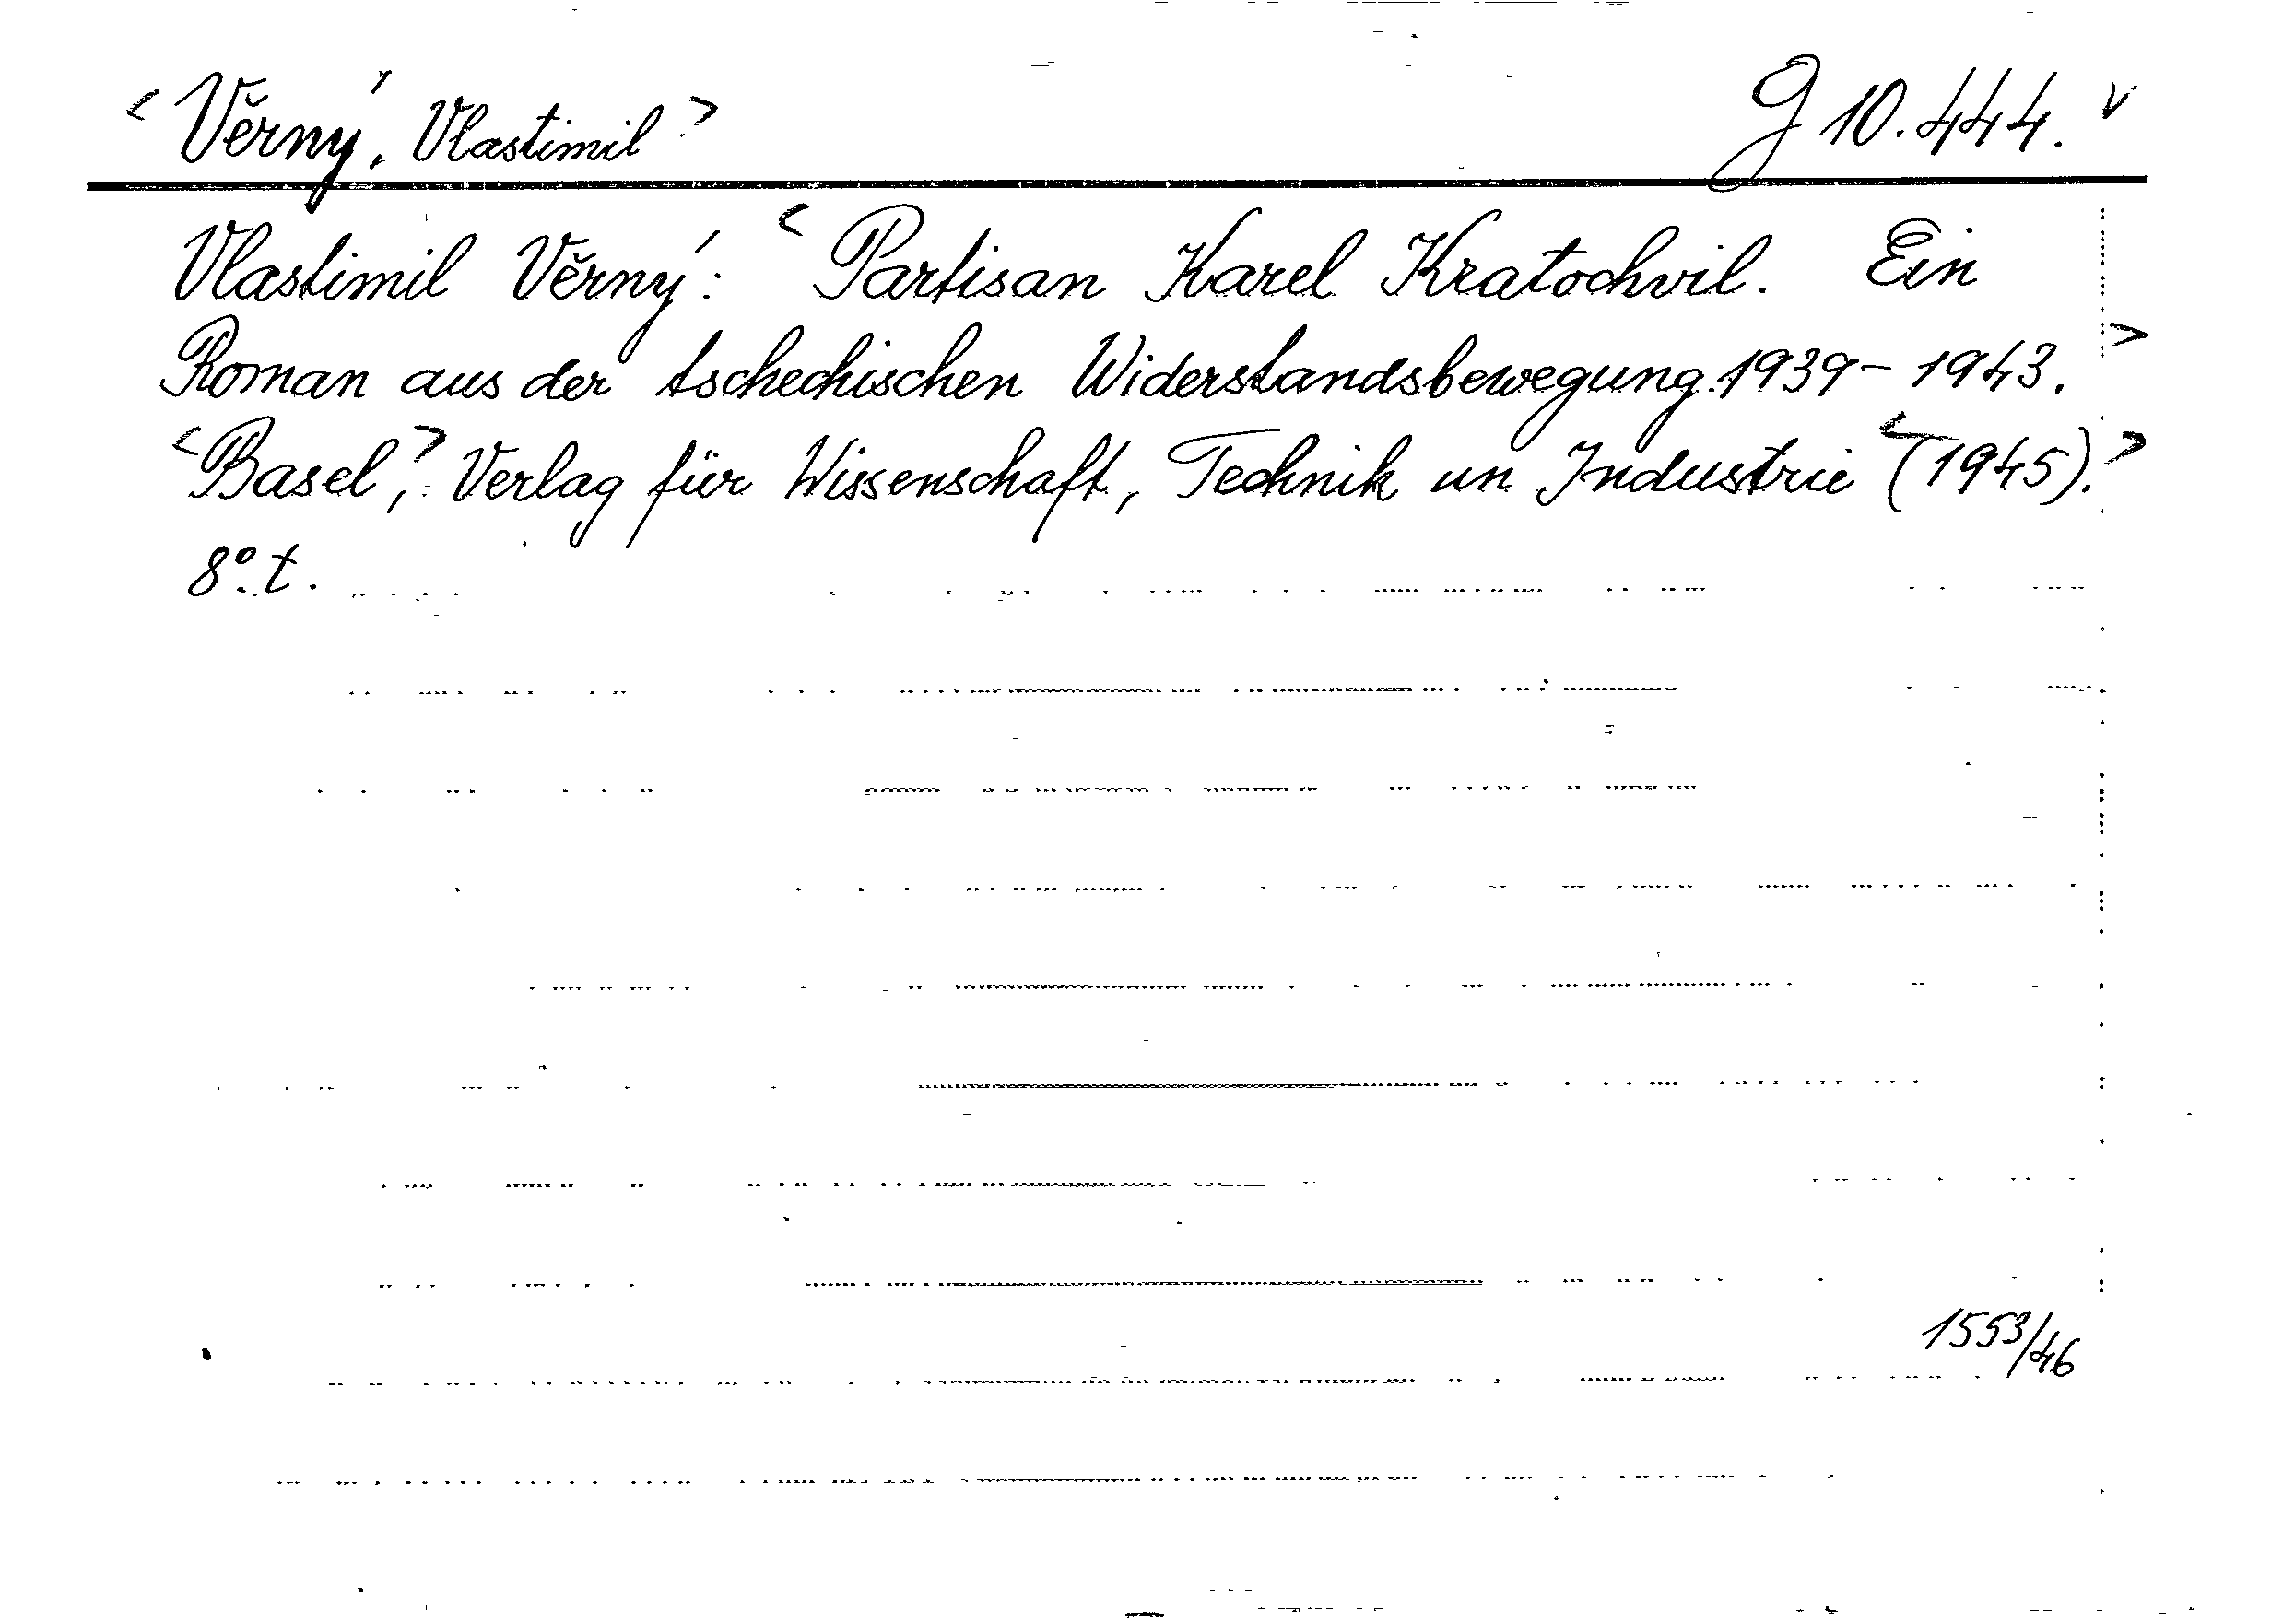 <Věrný, Vlastimil> G 10.444. v
Vlastimil Věrný: <Partisan Karel Kratochvil. Ein
Roman aus der tschechischen Widerstandsbewegung. 1939 - 1943.>
<Basel,> Verlag für Wissenschaft, Technik un Industrie <(1945).>
8º. t.
1553/46